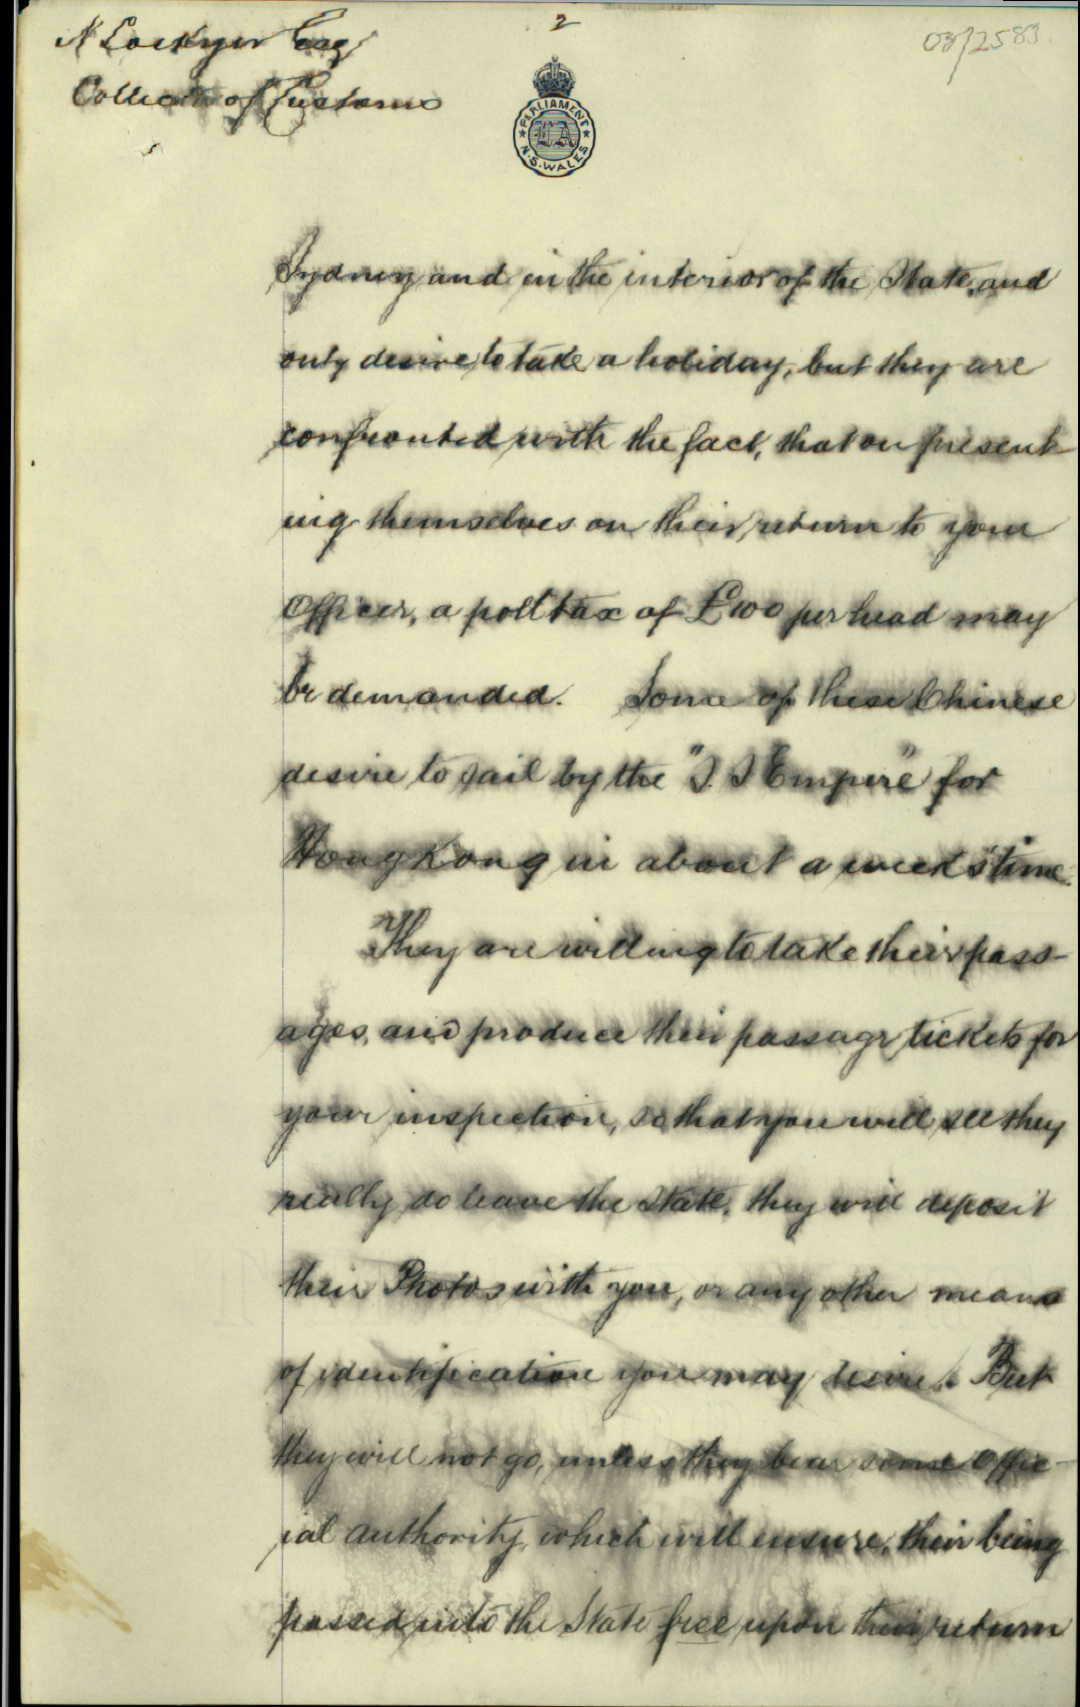 2
03/2583
N Lockyer Esq
Collector of Customs
PARLIAMENT
LA
N.S.WALES
Sydney and in the interior of the State, and
only desire to take a holiday, but they are
confronted with the fact, that on present-
ing themselves on their return to your
Officer, a poll tax of £100 per head may
be demanded. Some of these Chinese
desire to sail by the "S.S Empire" for
Hong Kong in about a week's time.
They are willing to take their pass-
ages, and produce their passage tickets for
your inspection, so that you will see they
really do leave the State, they will deposit
their Photos with you, or any other means
of identification you may desire. But
they will not go, unless they bear some Offic-
ial authority, which will ensure, their being
passed into the State free upon their return